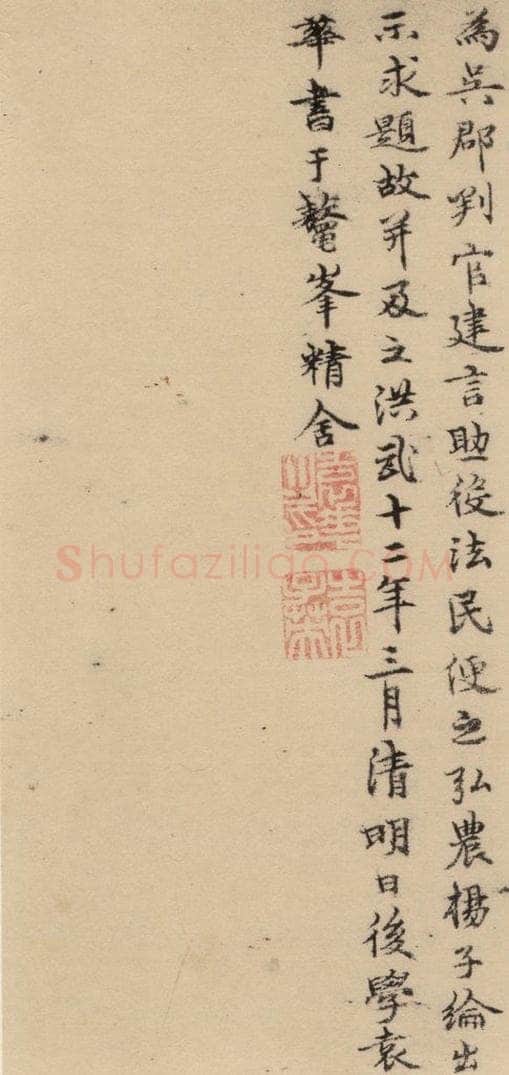 為吳郡判官建言助役法民便之弘農楊子綸出
示求題故并及之洪武十二年三月清明日後學袁
華書于鼇峯精舍
Shufaziliao.COM